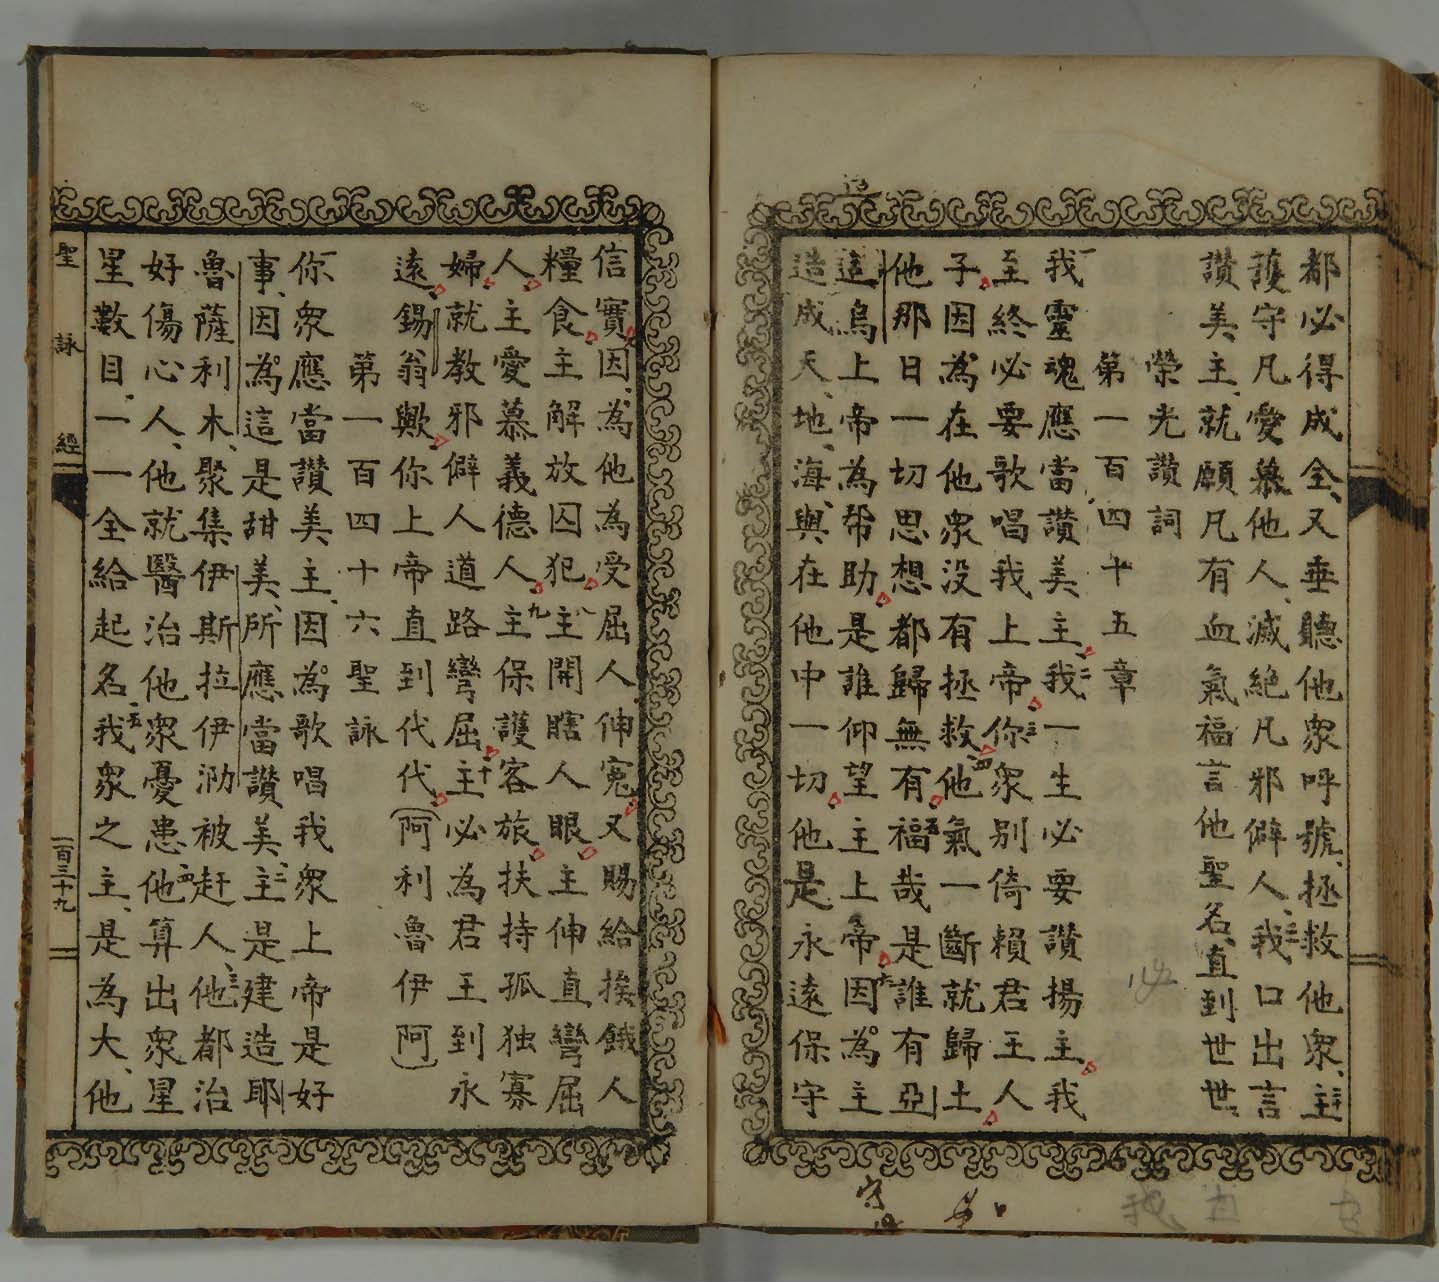 都必得成全、又垂聽他眾呼號、拯救他眾、二十主
護守凡愛慕他人、滅絕凡邪僻人、二一我口出言
讚美主、就願凡有血氣福言他聖名、直到世世、
榮光讚詞
第一百四十五章
一我靈魂應當讚美主、二我一生必要讚揚主、我
至終必要歌唱我上帝、三你眾別倚賴君王人
子、因為在他眾沒有拯救、四他氣一斷就歸土
他那日一切思想都歸無有、五福哉是誰有亞
适烏上帝為幇助、是誰仰望主上帝、六因為主
造成天、地、海、與在他中一切、他是永遠保守
信實、因為他為受屈人伸冤、又賜給挨餓人
糧食、主解放囚犯、八主開瞎人眼、主伸直彎屈
人、主愛慕義德人、九主保護客旅、扶持孤独寡
婦、就教邪僻人道路彎屈、十主必為君王到永
遠、錫翁歟、你上帝直到代代、(阿利魯伊阿)
第一百四十六聖詠
一你眾應當讚美主、因為歌唱我眾上帝是好
事、因為這是甜美、所應當讚美、二主是建造耶
魯薩利木、聚集伊斯拉伊泐被赶人、三他都治
好傷心人、他就醫治他眾憂患、四他算出眾星
星數目、一一全給起名、五我眾之主、是為大、他
聖詠經
一百三十九